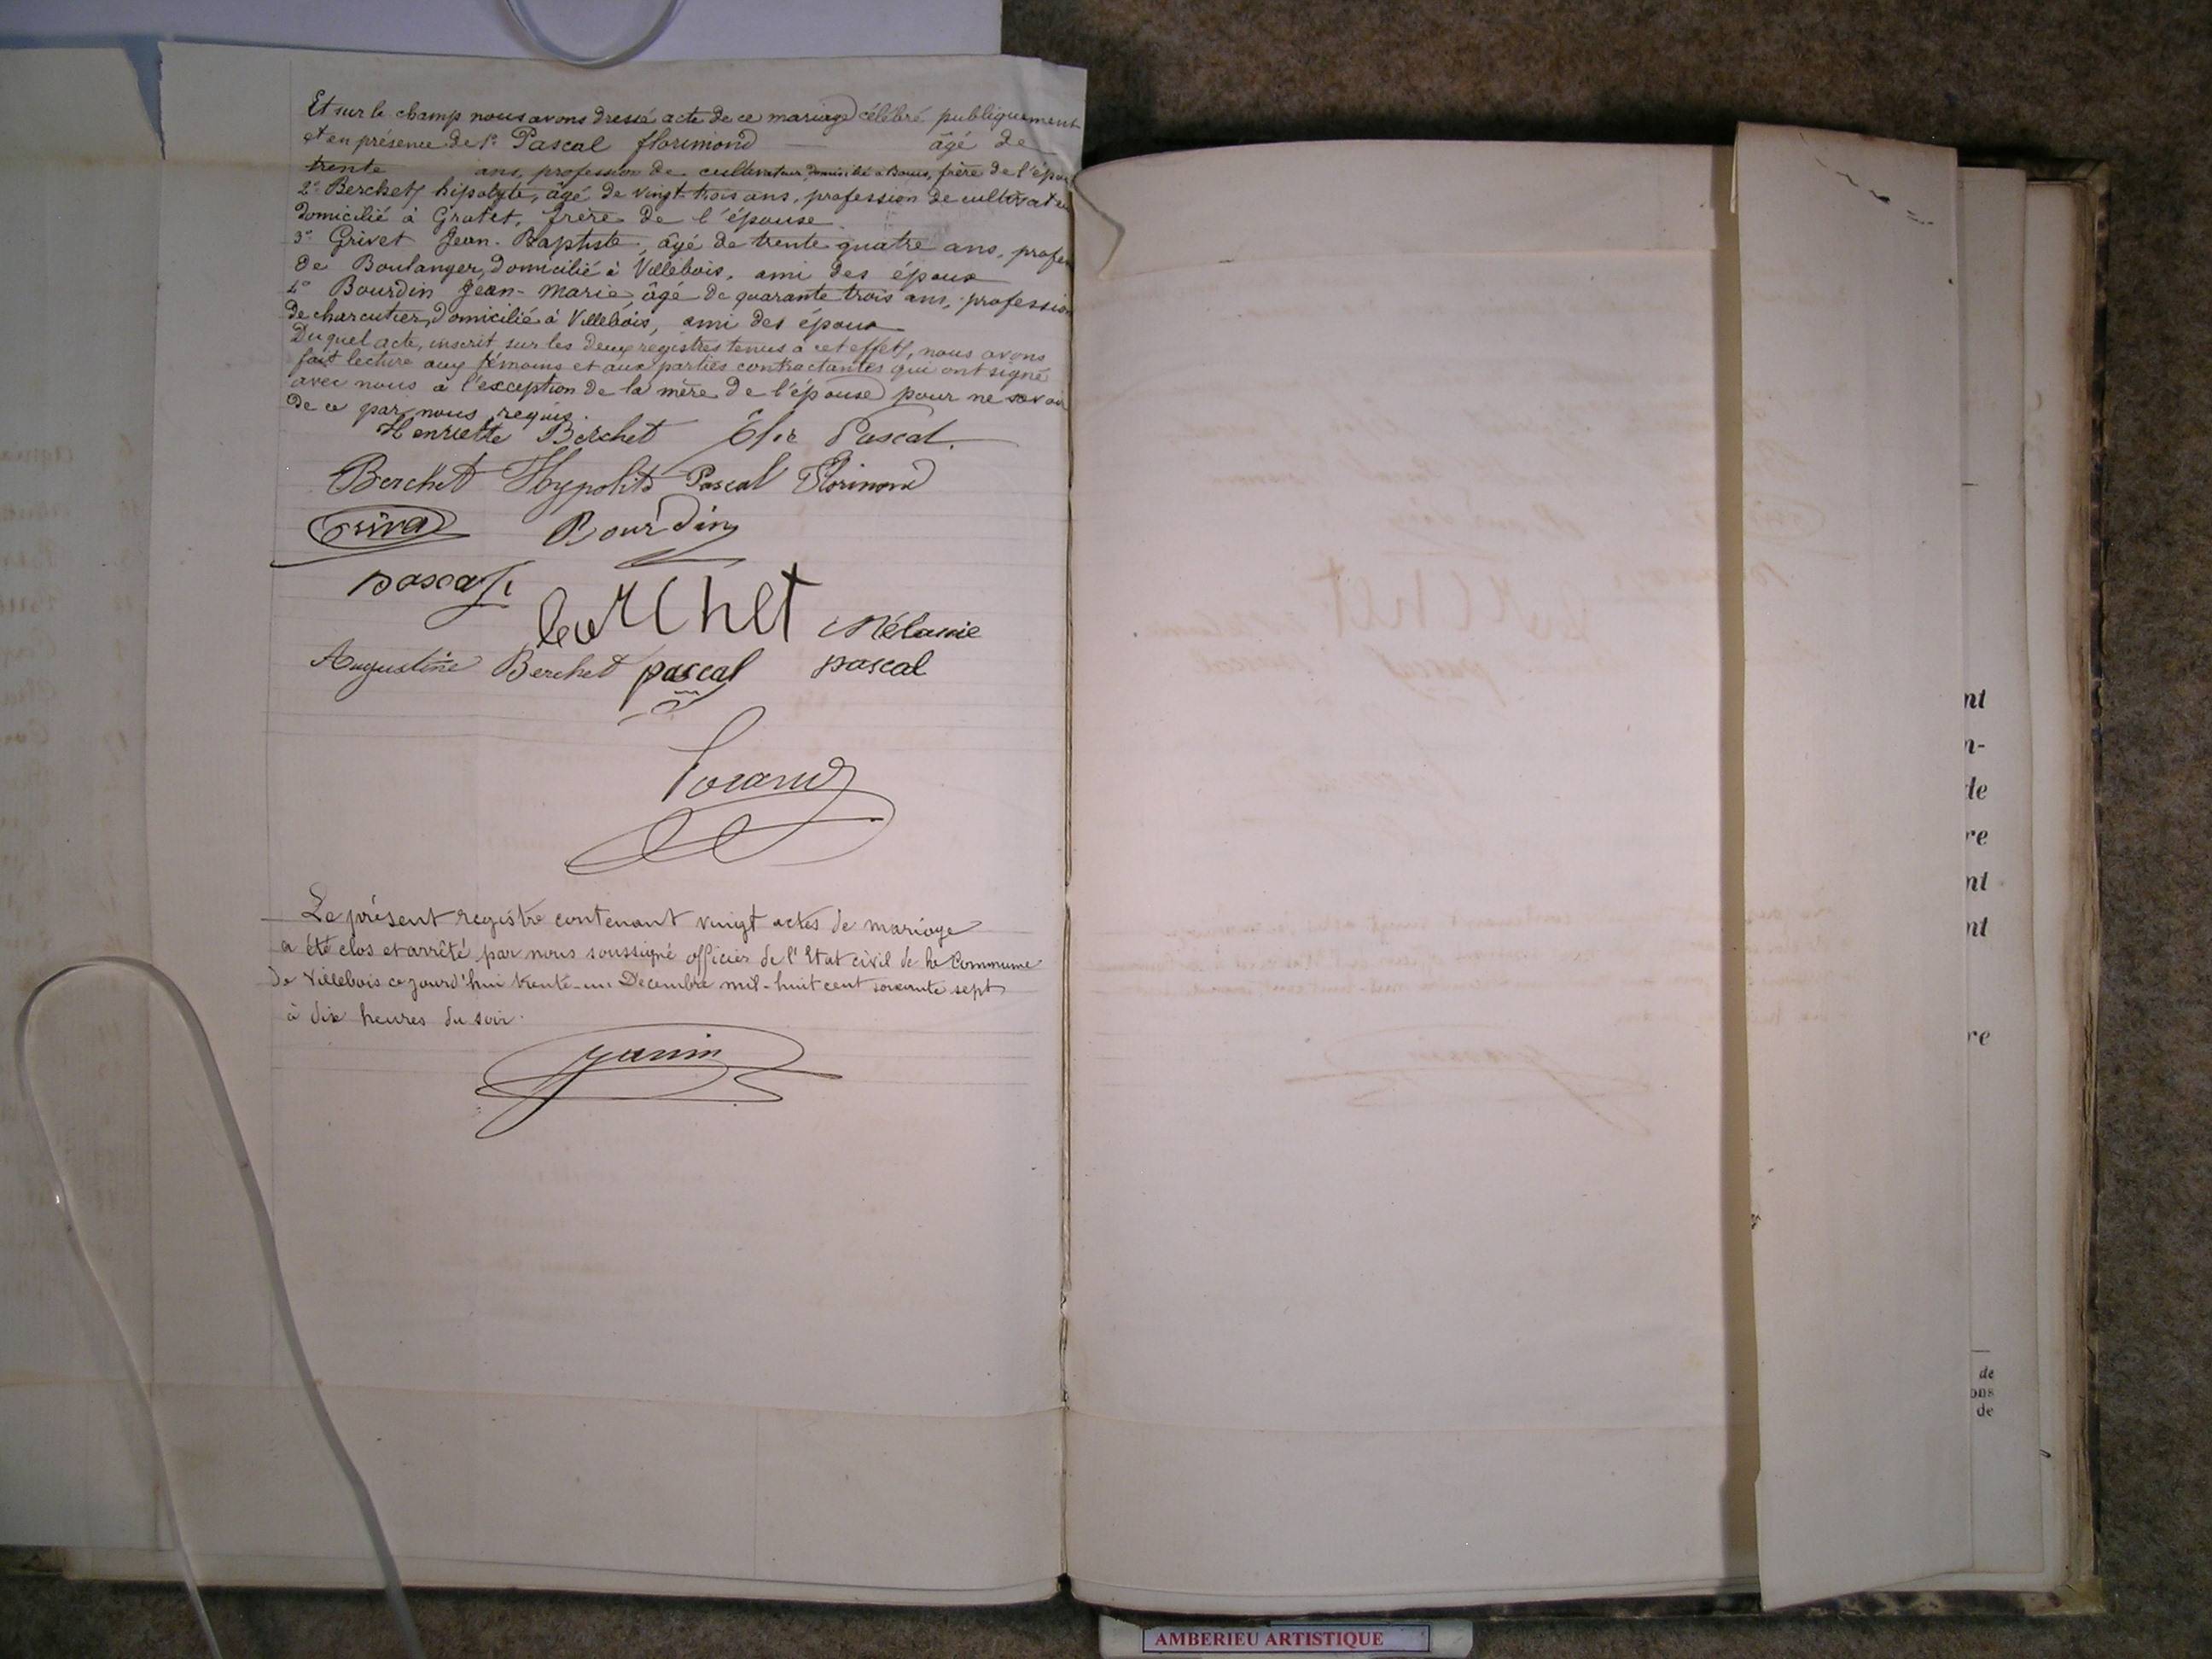 Et sur le champ nous avons dressé acte de ce mariage célébré publiquement
et en présence de 1° Pascal florimond — âgé de
trente ans, profession de cultivateur, domicilié à Bouis, frère de l'épou
2° Berchet hipolyte, âgé de vingt-trois ans, profession de cultivateu
domicilié à Grolet, frère de l'épouse
3° Grivet Jean-Baptiste, âgé de trente quatre ans, profes
de Boulanger, domicilié à Villebois, ami des époux
4° Bourdin Jean-Marie, âgé de quarante trois ans, profession
de charcutier, domicilié à Villebois, ami des époux
Duquel acte, inscrit sur les deux registres tenus à cet effet, nous avons
fait lecture aux témoins et aux parties contractantes qui ont signé
avec nous à l'exception de la mère de l'épouse pour ne savoir
de ce par nous requis.
Henriette Berchet Élie Pascal
Berchet Hypolite Pascal Florimond
Bourdin
pascal
berchet Mélanie
Augustine Berchet pascal pascal
Le présent registre contenant vingt actes de mariage
a été clos et arrêté par nous soussigné officier de l'Etat civil de la Commune
de Villebois ce jourd'hui trente-un Décembre mil-huit cent soixante sept
à dix heures du soir.
Janin
nt
n-
de
re
nt
nt
re
de
ons
de
AMBERIEU ARTISTIQUE